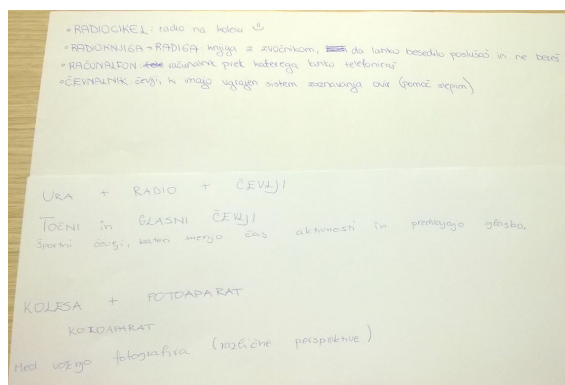 • RADIOCIKEL: radio na kolesu
• RADIOKNJIGA → RADIGA: knjiga z zvočnikom, da lahko besedilo poslušaš in ne bereš
• RAČUNALFON: računalnik prek katerega lahko telefoniraš
• ČEVNALNIK: čevlji, ki imajo vgrajen sistem zaznavanja ovir (pomoč slepim)
URA + RADIO + ČEVLJI
TOČNI in GLASNI ČEVLJI
Športni čevlji, kateri merijo čas aktivnosti in predvajajo glasbo.
KOLESA + FOTOAPARAT
KOLOAPARAT
Med vožnjo fotografira (različne perspektive)